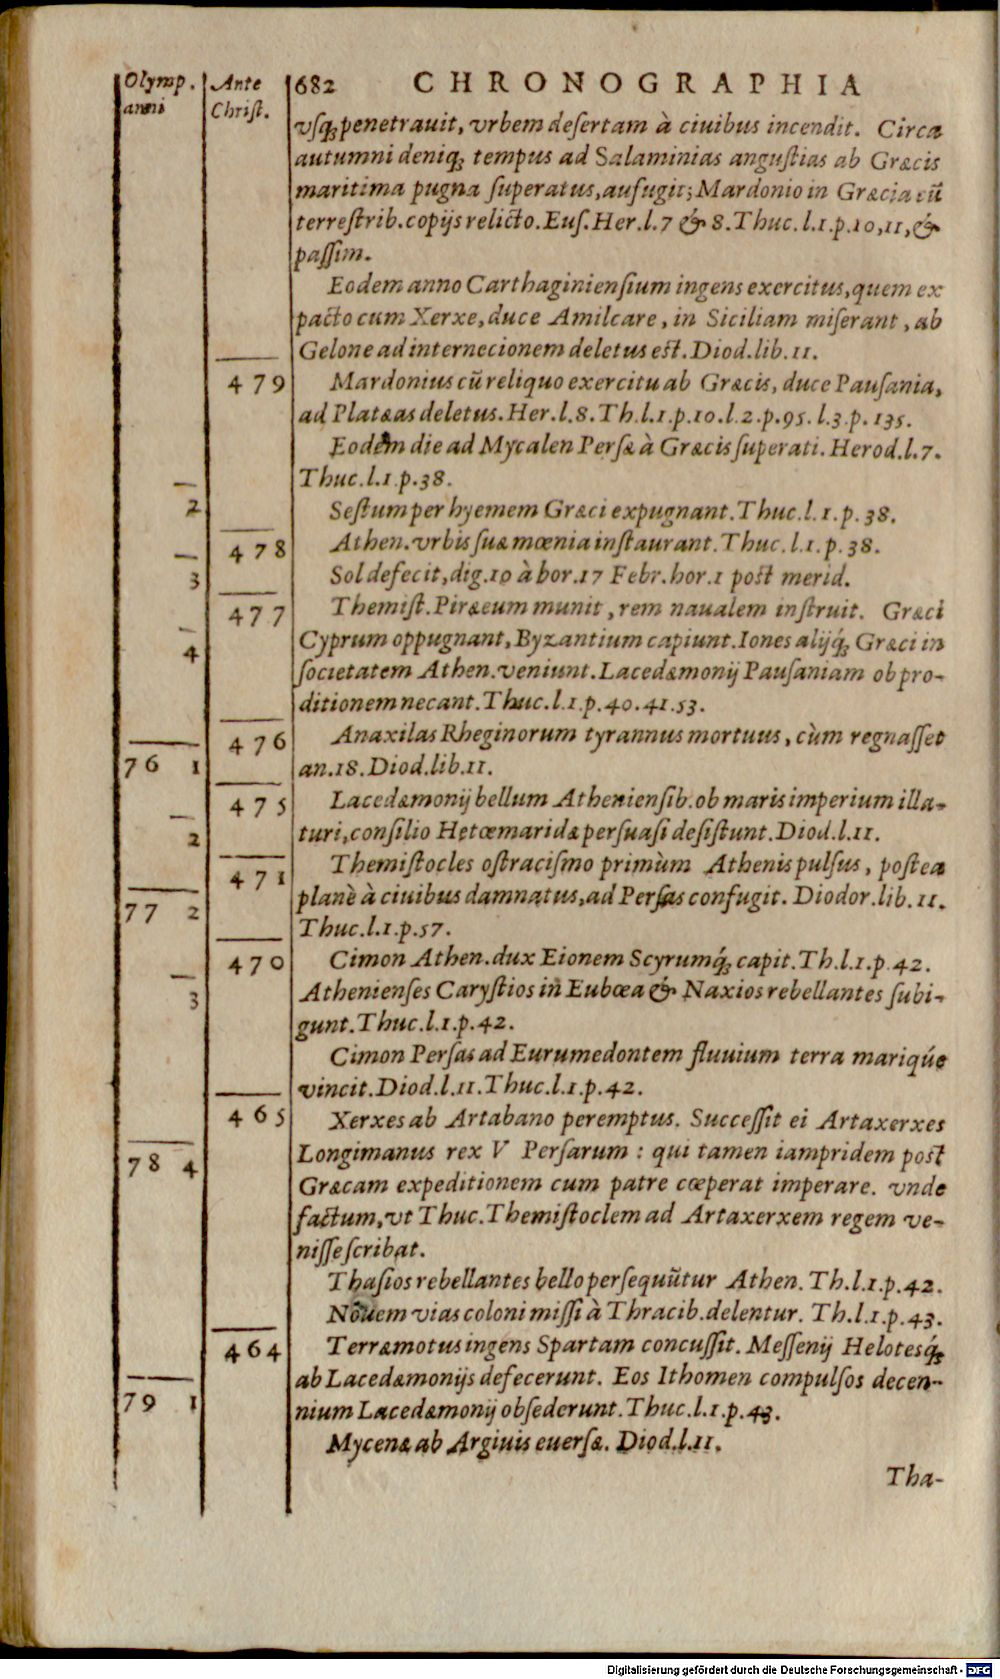 Olymp. Ante 682 CHRONOGRAPHIA
anni Christ.
vsq́; penetrauit, vrbem desertam à ciuibus incendit. Circa
autumni deniq́; tempus ad Salaminias angustias ab Græcis
maritima pugna superatus, aufugit; Mardonio in Græcia cũ
terrestrib. copijs relicto. Eus. Her. l. 7 & 8. Thuc. l. 1. p. 10, 11, &
passim.
Eodem anno Carthaginiensium ingens exercitus, quem ex
pacto cum Xerxe, duce Amilcare, in Siciliam miserant, ab
Gelone ad internecionem deletus est. Diod. lib. 11.
479 Mardonius cũ reliquo exercitu ab Græcis, duce Pausania,
ad Platæas deletus. Her. l. 8. Th. l. 1. p. 10. l. 2. p. 95. l. 3. p. 135.
Eodem die ad Mycalen Persæ à Græcis superati. Herod. l. 7.
Thuc. l. 1. p. 38.
2 Sestum per hyemem Græci expugnant. Thuc. l. 1. p. 38.
478 Athen. vrbis suæ mœnia instaurant. Thuc. l. 1. p. 38.
3 Sol defecit, dig. 10 à bor. 17 Febr. hor. 1 post merid.
477 Themist. Piræeum munit, rem naualem instruit. Græci
4 Cyprum oppugnant, Byzantium capiunt. Iones alijq́; Græci in
societatem Athen. veniunt. Lacedæmonij Pausaniam ob pro-
ditionem necant. Thuc. l. 1. p. 40. 41. 53.
476 Anaxilas Rheginorum tyrannus mortuus, cùm regnasset
76 1 an. 18. Diod. lib. 11.
475 Lacedæmonij bellum Atheniensib. ob maris imperium illa-
2 turi, consilio Hetœmaridæ persuasi desistunt. Diod. l. 11.
471 Themistocles ostracismo primùm Athenis pulsus, postea
77 2 planè à ciuibus damnatus, ad Persas confugit. Diodor. lib. 11.
Thuc. l. 1. p. 57.
470 Cimon Athen. dux Eionem Scyrumq́; capit. Th. l. 1. p. 42.
3 Athenienses Carystios in Eubœa & Naxios rebellantes subi-
gunt. Thuc. l. 1. p. 42.
Cimon Persas ad Eurumedontem fluuium terra mariqúe
vincit. Diod. l. 11. Thuc. l. 1. p. 42.
465 Xerxes ab Artabano peremptus. Successit ei Artaxerxes
78 4 Longimanus rex V Persarum : qui tamen iampridem post
Græcam expeditionem cum patre cœperat imperare. vnde
factum, vt Thuc. Themistoclem ad Artaxerxem regem ve-
nisse scribat.
Thasios rebellantes bello persequũtur Athen. Th. l. 1. p. 42.
Nouem vias coloni missi à Thracib. delentur. Th. l. 1. p. 43.
464 Terræmotus ingens Spartam concussit. Messenij Helotesq́;
ab Lacedæmonijs defecerunt. Eos Ithomen compulsos decen-
79 1 nium Lacedæmonij obsederunt. Thuc. l. 1. p. 43.
Mycenæ ab Argiuis euersæ. Diod. l. 11.
Tha-
Digitalisierung gefördert durch die Deutsche Forschungsgemeinschaft - DFG